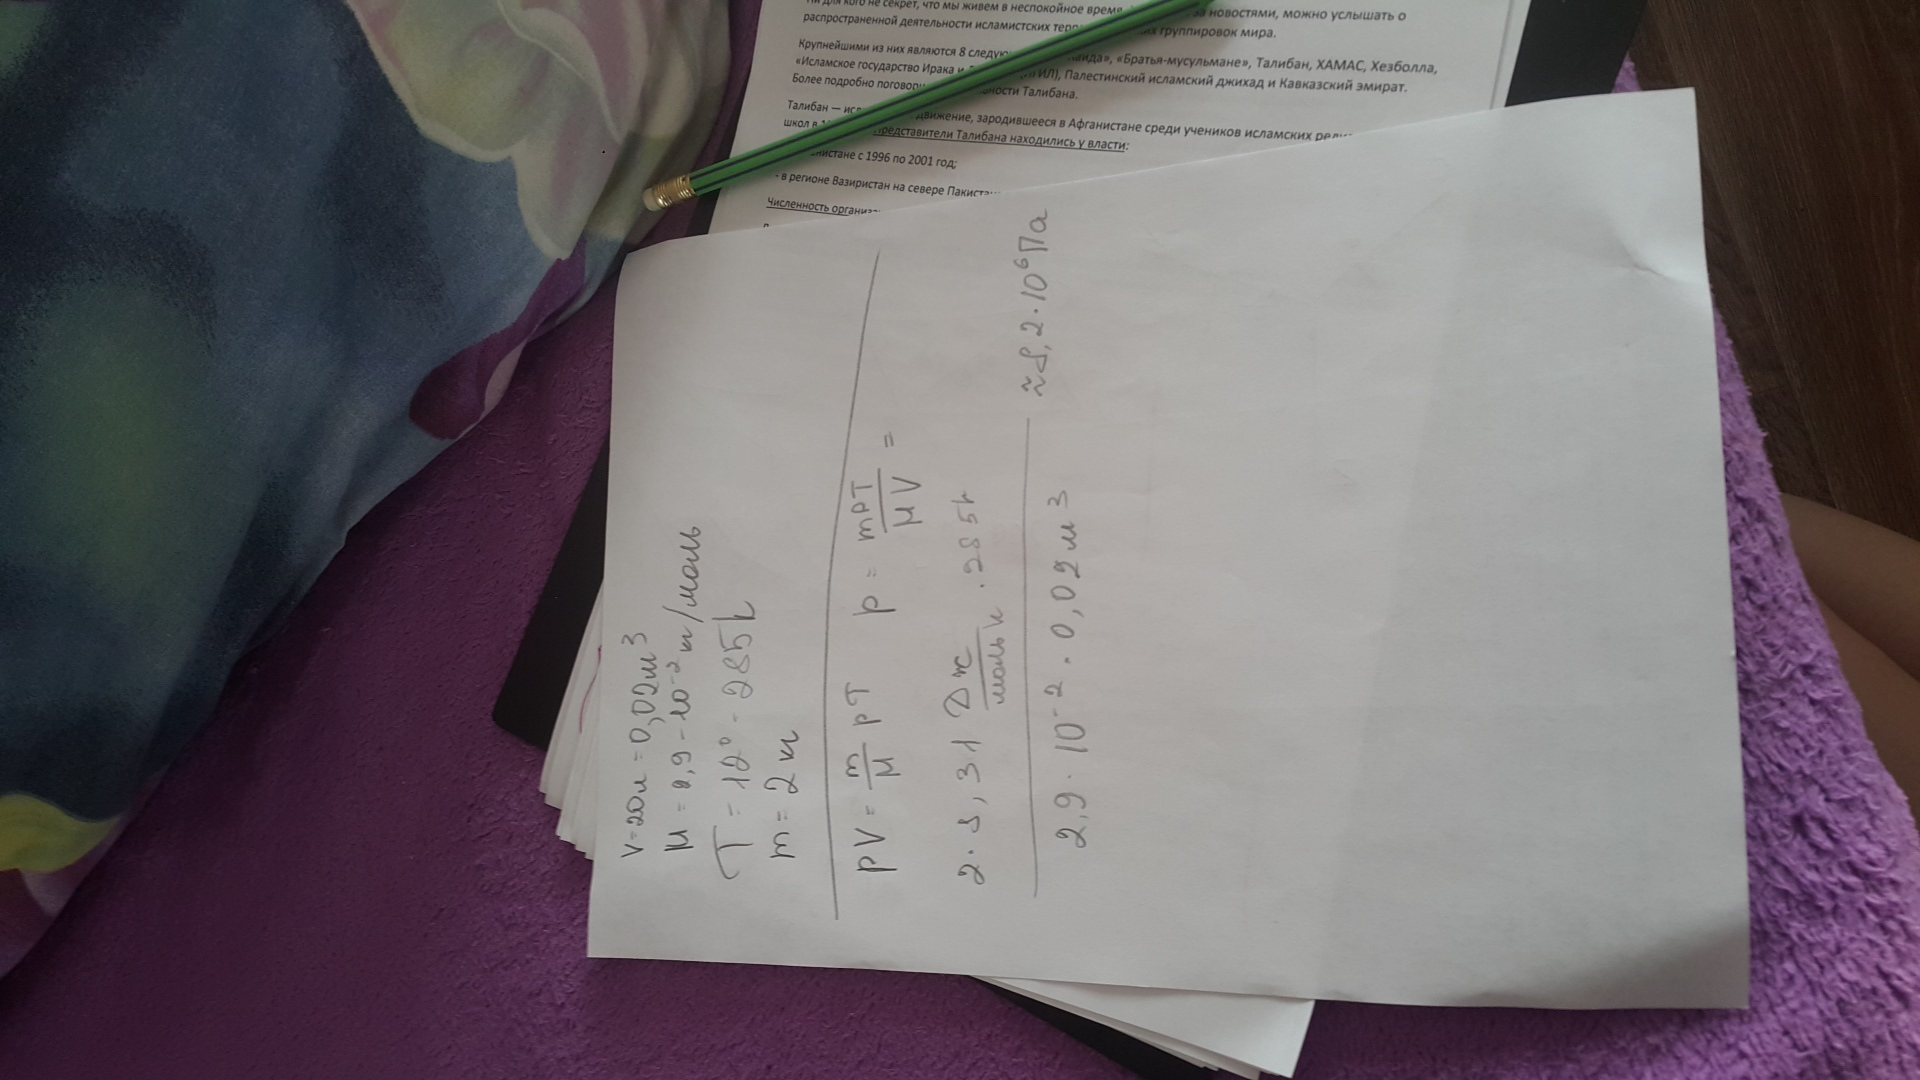 Ни для кого не секрет, что мы живем в неспокойное время, за новостями, можно услышать о
распространенной деятельности исламистских группировок мира.
Крупнейшими из них являются 8 «Братья-мусульмане», Талибан, ХАМАС, Хезболла,
«Исламское государство Ирака и Палестинский исламский джихад и Кавказский эмират.
Более подробно Талибана.
Талибан — движение, зародившееся в Афганистане среди учеников исламских
школ в представители Талибана находились у власти:
с 1996 по 2001 год;
- в регионе Вазиристан на севере
Численность
V=20л = 0,02м³
М = 2,9-10⁻² кг/моль
T = 12° - 285k
m = 2 кг
pV = m/М pT p = mPT/МV =
2 · 8,31 Дж/моль к · 285k
2,9 · 10⁻² · 0,02 м³ ≈ 8,2 · 10⁶ Па